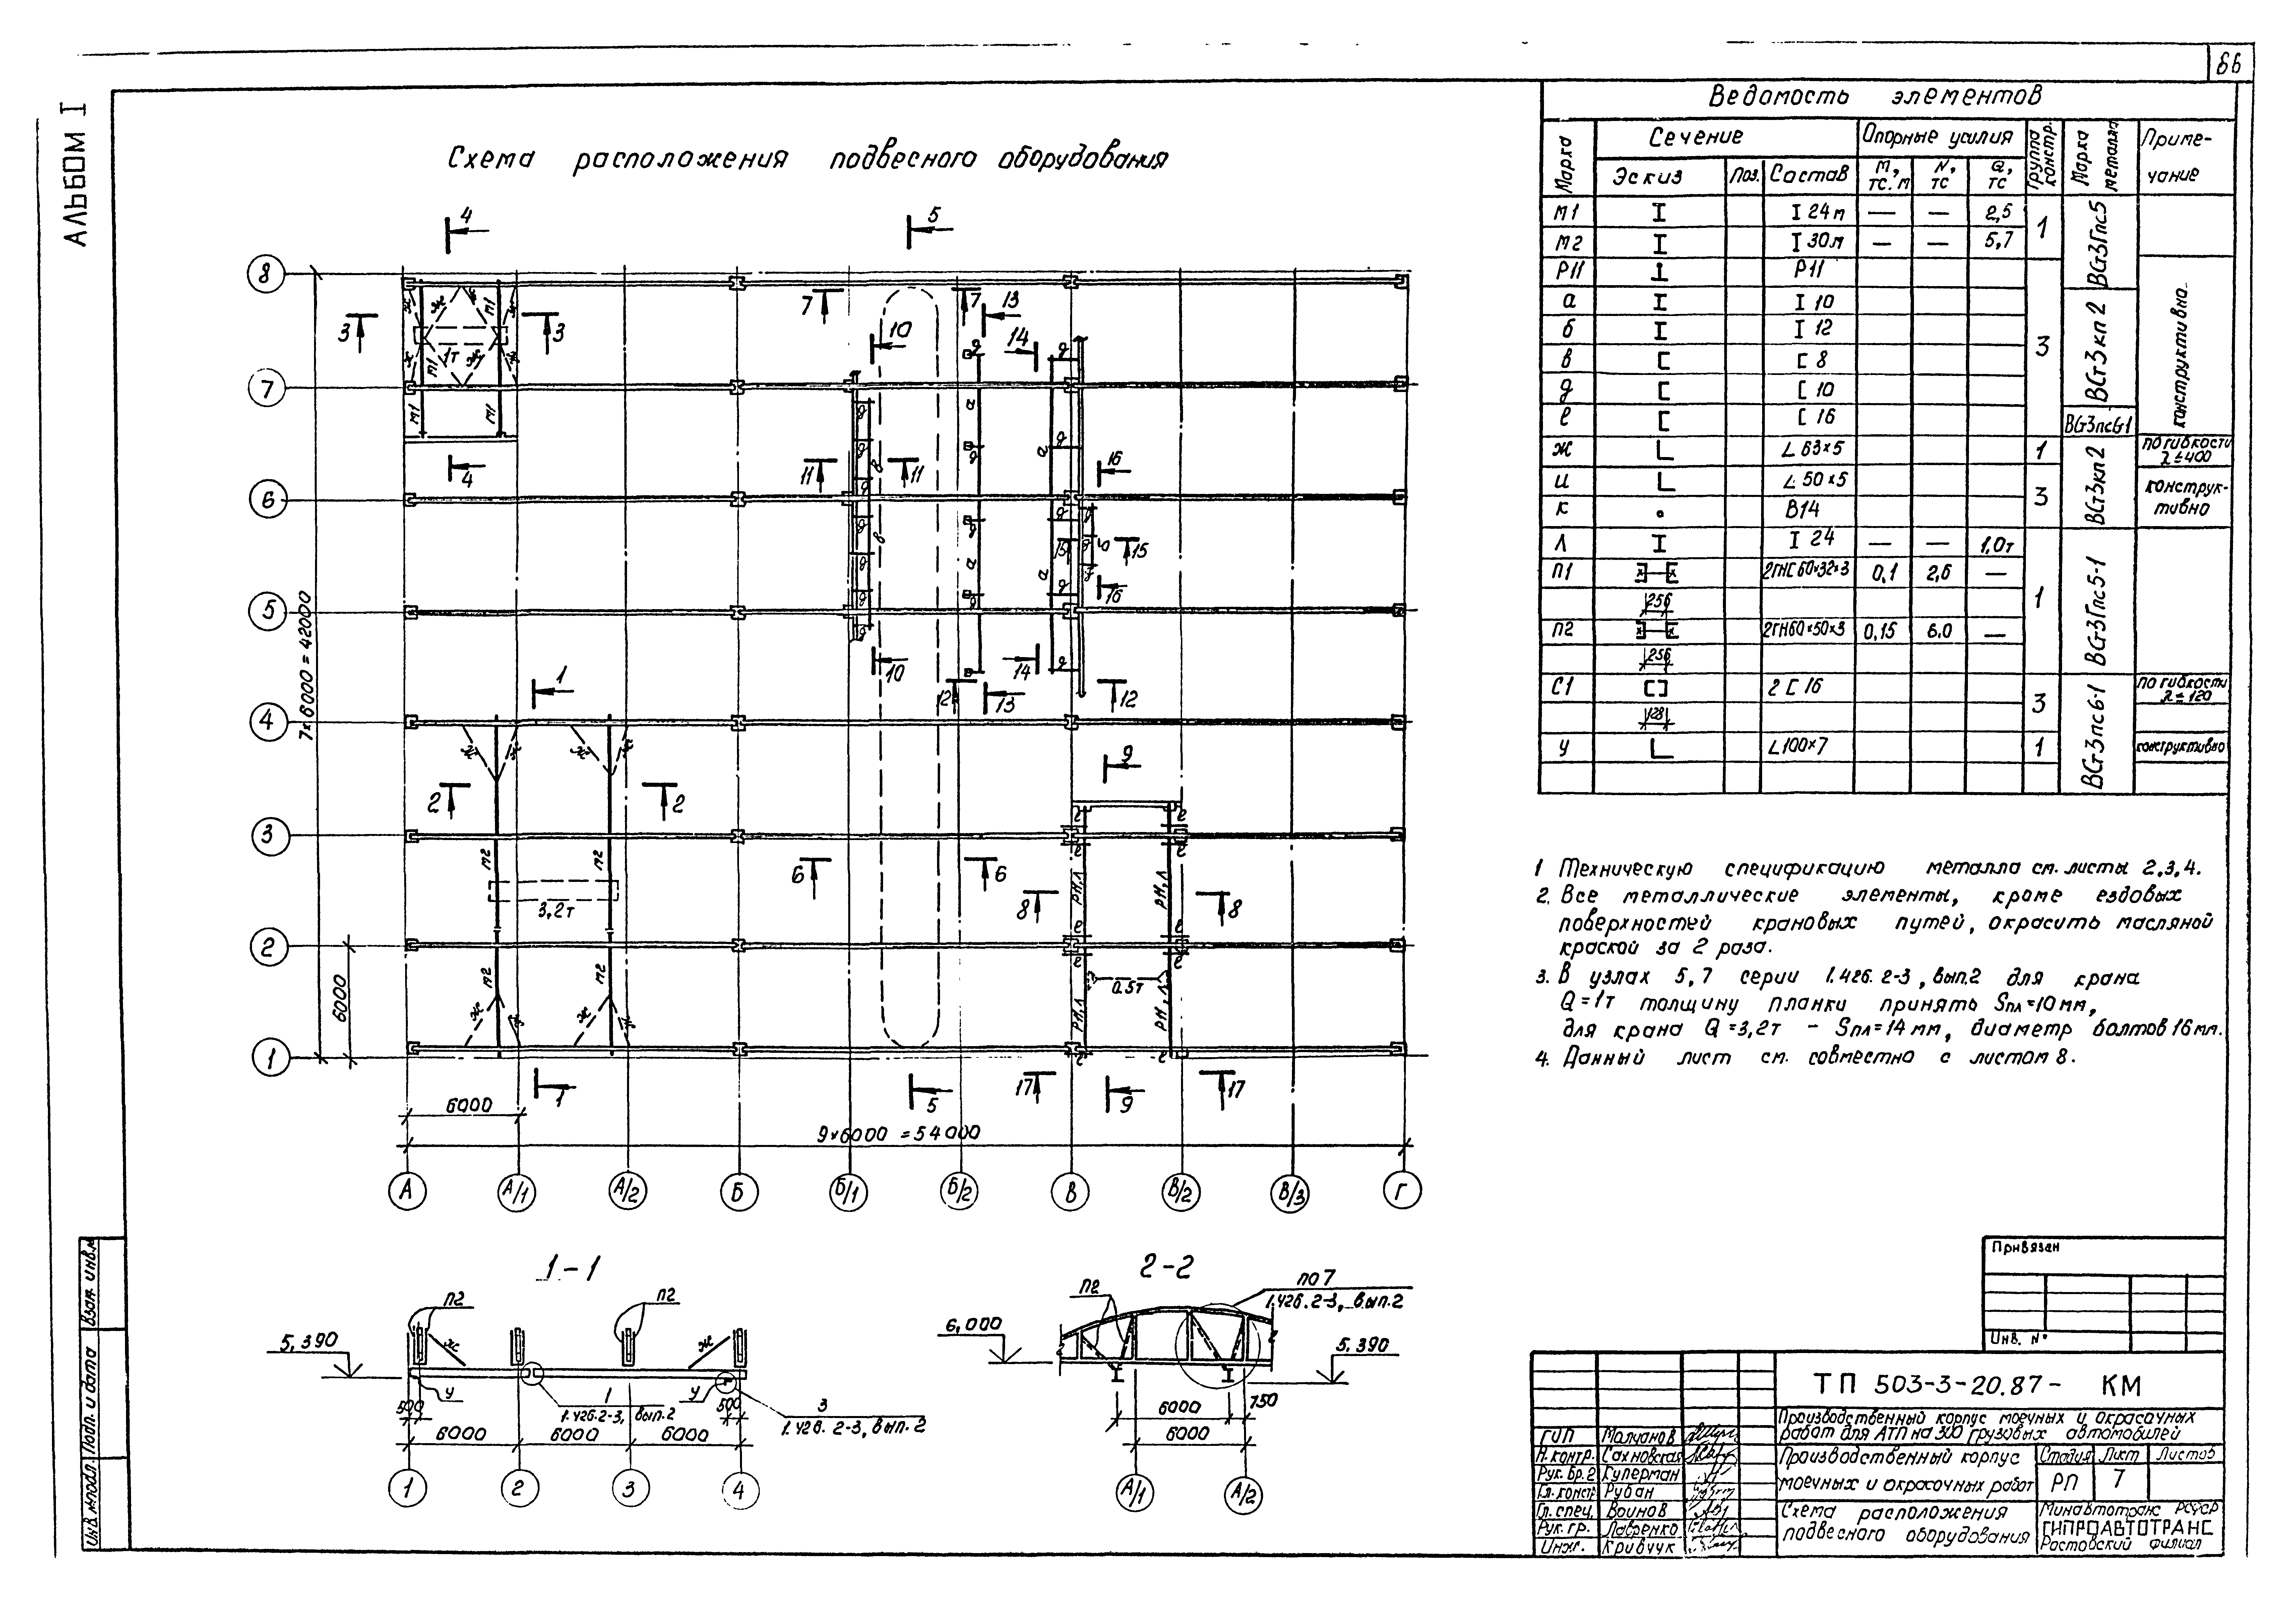 66
АЛЬБОМ I
Схема расположения подвесного оборудования
4 5
8
7 7 13
3 3 10 14
ж ж м1 ж
1т
м1 ж ж
д д
7
м1 м1
а д
4 11 11 16
в д а
6
д 15 15 б
в а
16
5
10 14
1 12 13 12
4
ж ж ж ж
9
2 2
е е
3
е е
м2 м2
6 6
Р11,Л Р11,Л
8 8
3,2т
е е
2
е е
м2 м2
0.5т
Р11,Л Р11,Л
ж ж ж ж
е е
1
1 5 17 9 17
7х6000=42000
6000
6000
9×6000 =54000
А А/1 А/2 Б Б/1 Б/2 В В/2 В/3 Г
1-1
П2 П2
5,390
ж ж
У У
500 500
1
1.426.2-3, вып.2
3
1.426.2-3, вып.2
6000 6000 6000
1 2 3 4
2-2
П2
ПО 7
1.426.2-3, вып.2
6,000
5.390
6000 750
6000
А/1 А/2
Ведомость элементов
Марка Сечение Опорные усилия Группа констр. Марка металла Приме-чание
Эскиз Поз. Состав М, тс.м N, тс Q, тс
М1 I 24м — — 2,5 1 ВСт3Гпс5
М2 I 30м — — 5,7
Р11 Р11 3 конструктивно
а I 10 ВСт3кп2
б I 12
в [ 8
д [ 10
е [ 16 ВСт3пс6-1
ж ∟ 63×5 1 ВСт3кп2 по гибкости λ≤400
и ∟ 50×5 3 конструк-тивно
к В14
Л I 24 — — 1,0т 1 ВСт3Гпс5-1
П1 2ГНС60×32×3 0,1 2,6 —
256
П2 2ГН60×50×3 0,15 6.0 —
256
С1 2 [ 16 3 ВСт3пс6-1 по гибкости λ≤120
128
У ∟100×7 1 конструктивно
1 Техническую спецификацию металла см. листы 2,3,4.
2. Все металлические элементы, кроме ездовых
поверхностей крановых путей, окрасить масляной
краской за 2 раза.
3. В узлах 5,7 серии 1.426.2-3, вып.2 для крана
Q=1т толщину планки принять Sпл=10мм,
для крана Q=3,2т – Sпл=14мм, диаметр болтов 16мм.
4. Данный лист см. совместно с листом 8.
Привязан
Инв. №
ТП 503-3-20.87- КМ
Производственный корпус моечных и окрасочных
работ для АТП на 300 грузовых автомобилей
ГИП Молчанов
Н.контр. Сахновская
Рук. бр.2 Куперман
Гл.констр Рубан
Гл.спец. Воинов
Рук.гр. Лавренко
Инж. Кривчук
Производственный корпус
моечных и окрасочных работ
Стадия Лист Листов
РП 7
Схема расположения
подвесного оборудования
Минавтотранс РСФСР
ГИПРОАВТОТРАНС
Ростовский филиал
Взам. инв.№
Подп. и дата
Инв.№подл.